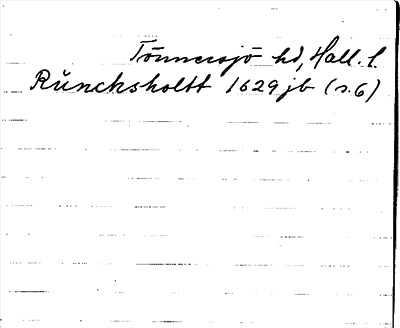 Tönnersjö hd, Hall. l.
Rŭncksholtt 1629 jb (s. 6)